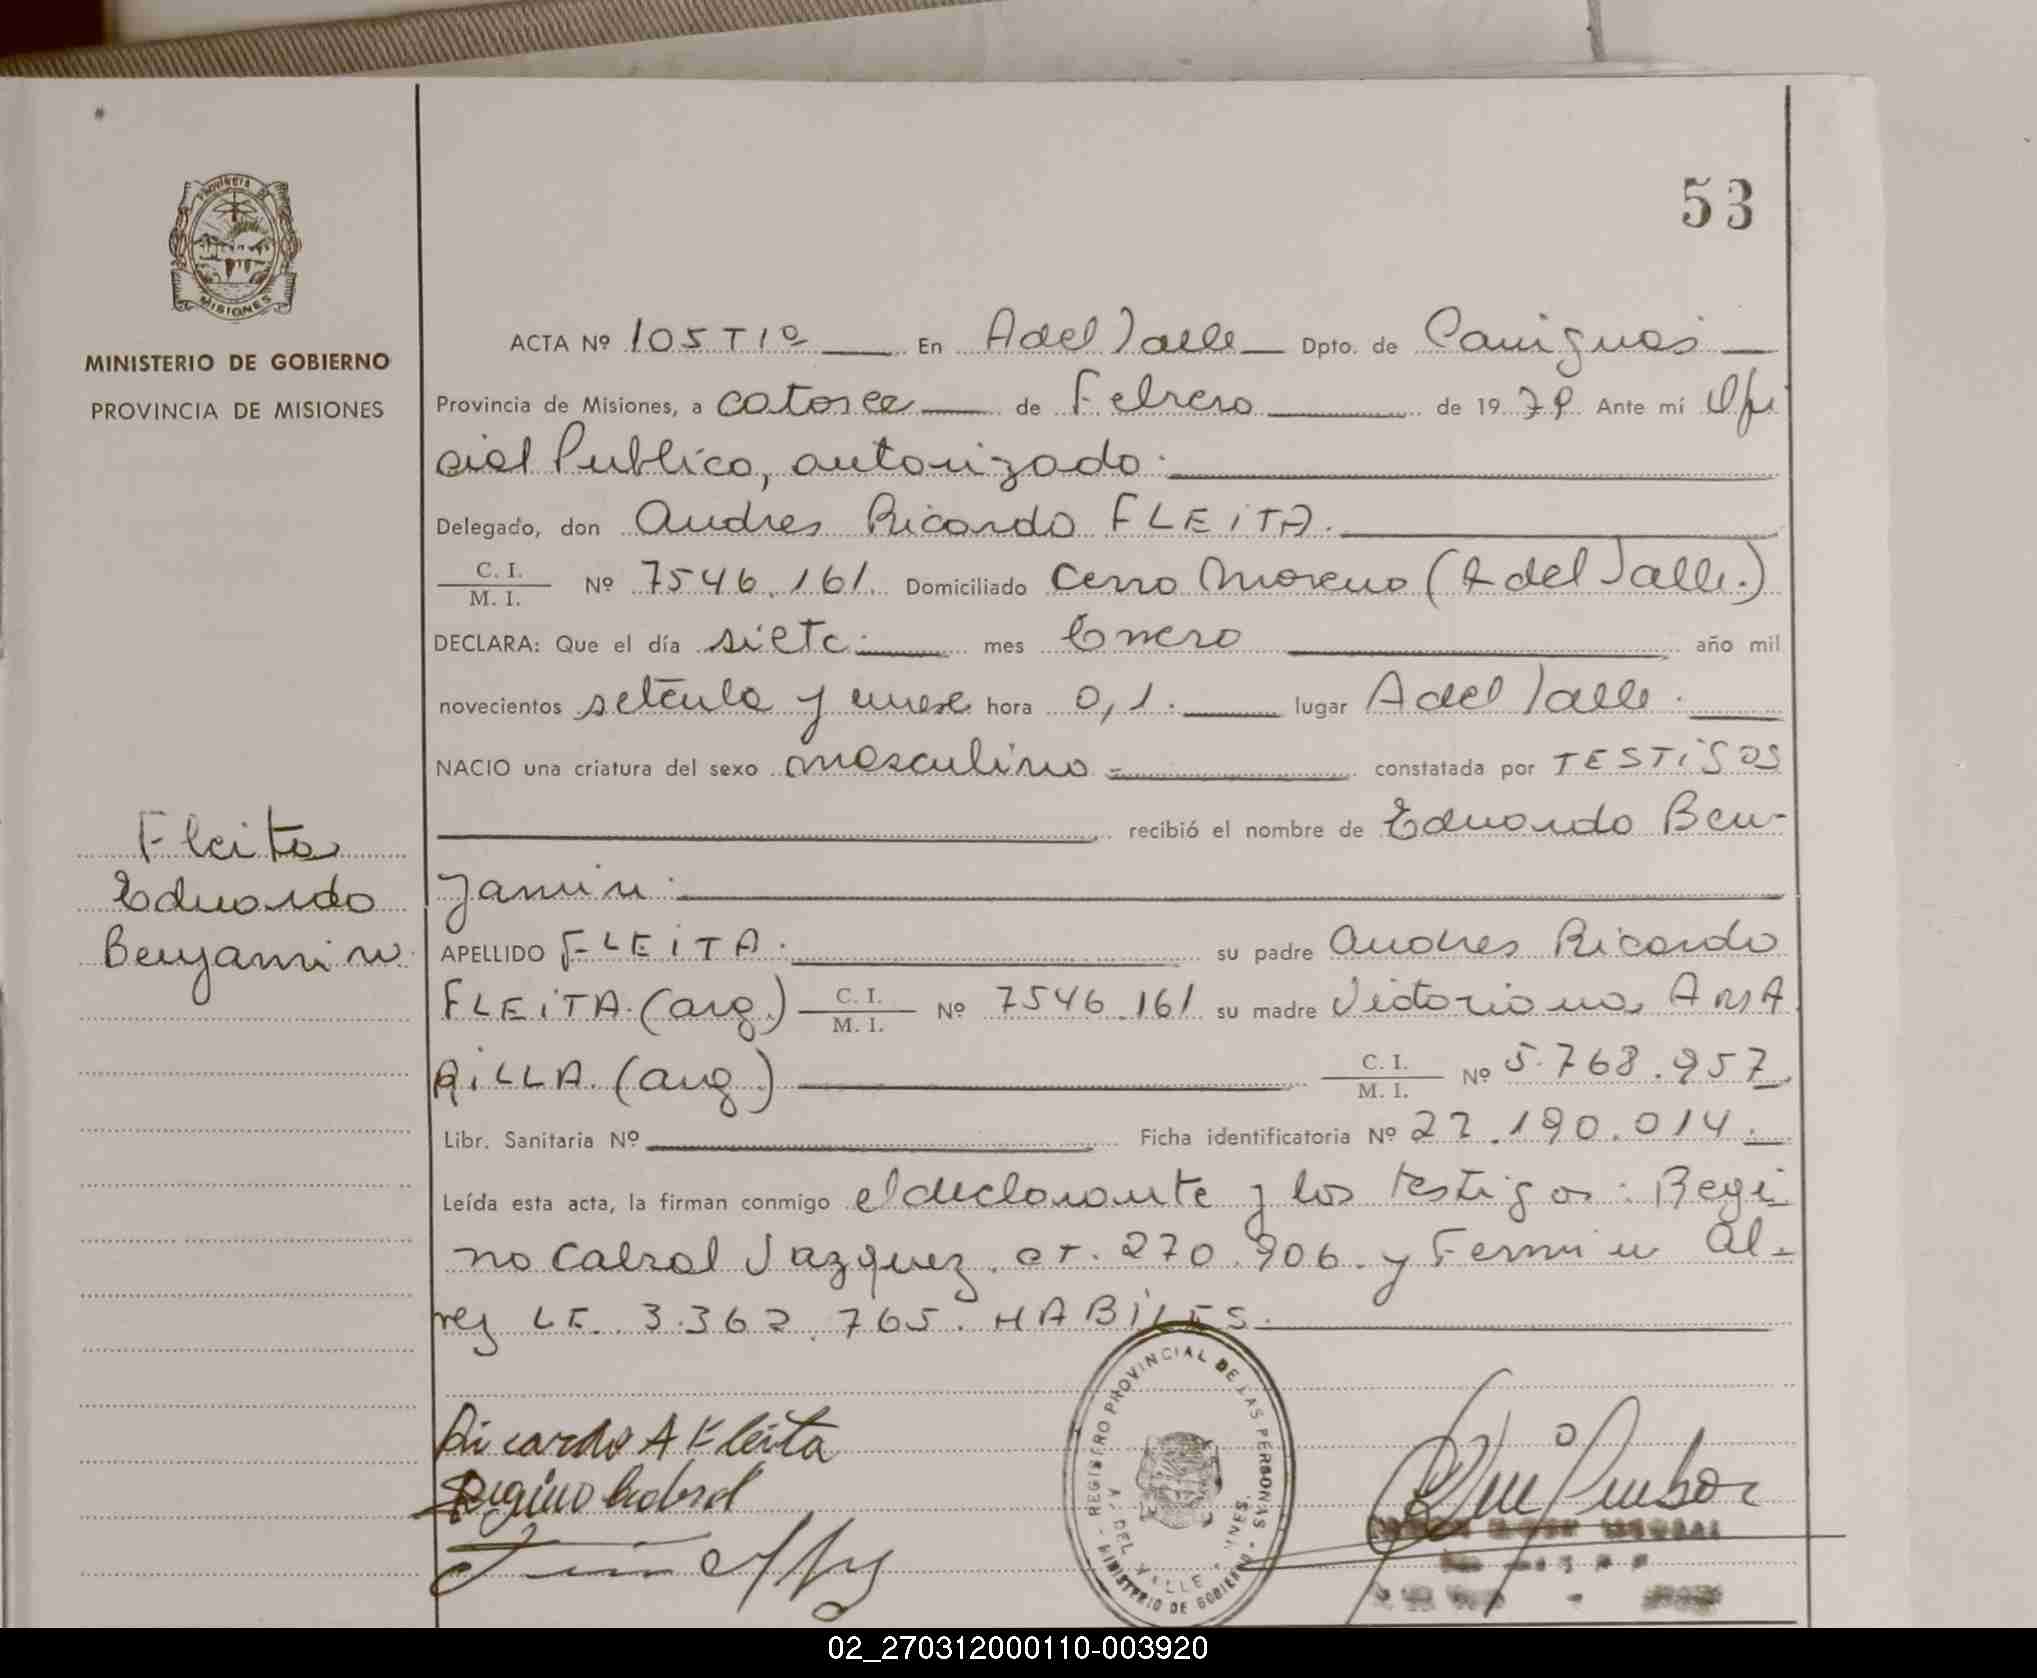 53
PROVINCIA DE
MISIONES
MINISTERIO DE GOBIERNO
PROVINCIA DE MISIONES
ACTA Nº 105 T 1º En A del Valle Dpto. de Cainguas
Provincia de Misiones, a catorce de Febrero de 1979 Ante mí Ofi
cial Publico, autorizado.
Delegado, don Andres Ricardo FLEiTA.
C. I.
M. I. Nº 7546.161. Domiciliado Cerro Moreno (A del Valle.)
DECLARA: Que el día siete. mes Enero año mil
novecientos setenta y nueve hora 0,1. lugar A del Valle.
NACIO una criatura del sexo masculino constatada por TESTiGOS
recibió el nombre de Eduardo Ben-
Fleita
Eduardo
Benyamin
yamin.
APELLIDO FLEiTA. su padre Andres Ricardo
FLEiTA. (arg.) C. I.
M. I. Nº 7546.161 su madre Victoriana
(arg.) C. I.
M. I. Nº 5.768.957
Libr. Sanitaria Nº Ficha identificatoria Nº 27.190.014.
Leída esta acta, la firman conmigo el declarante y los testigos: Regi
no Cabral Vazquez. 270.906. y Fermin Al-
rez LE. 3.362.765. HABiLES.
Ricardo A Fleita
Regino Cabral
REGISTRO PROVINCIAL DE LAS PERSONAS
A. DEL VALLE - MNES.
MINISTERIO DE GOBIERNO
02_270312000110-003920